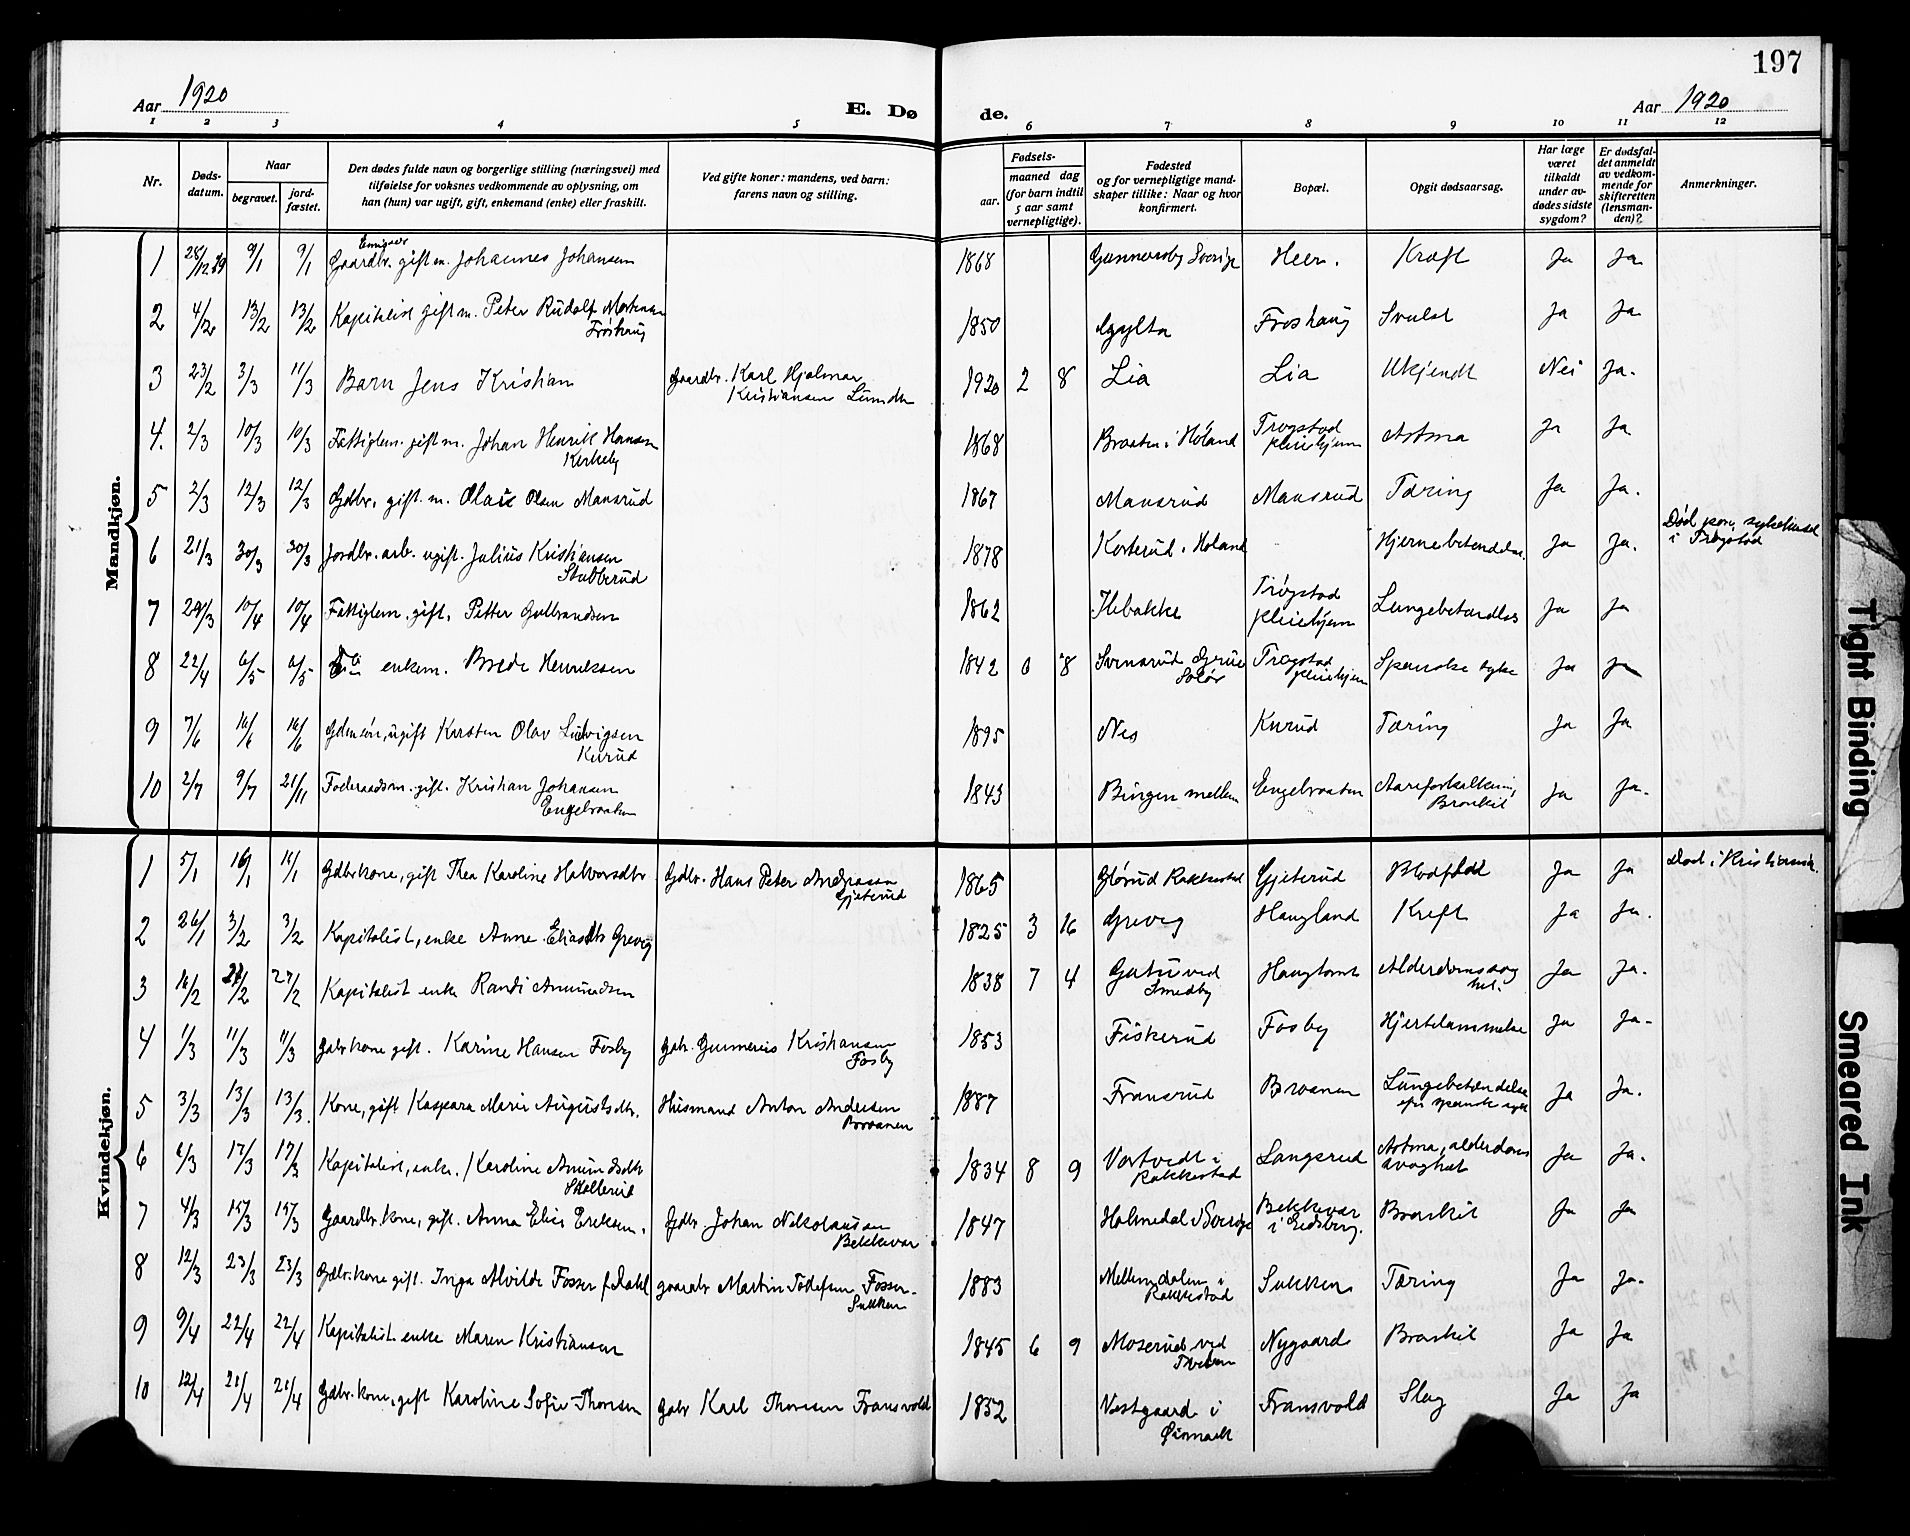 197
Aar 1920
E. Dø
de.
Aar 1920
1 2 3 4 5 6 7 8 9 10 11 12
Nr.
Døds-
datum.
Naar
begravet.
jord-
fæstet.
Den dødes fulde navn og borgerlige stilling (næringsvei) med
tilføielse for voksnes vedkommende av oplysning, om
han (hun) var ugift, gift, enkemand (enke) eller fraskilt.
Ved gifte koner: mandens, ved barn:
farens navn og stilling.
Fødsels-
aar.
maaned dag
(for barn indtil
5 aar samt
vernepligtige).
Fødested
og for vernepligtige mand-
skaper tillike: Naar og hvor
konfirmert.
Bopæl.
Opgit dødsaarsag.
Har læge
været
tilkaldt
under av-
dødes sidste
sygdom?
Er dødsfal-
det anmeldt
av vedkom-
mende for
skifteretten
(lensman-
den)?
Anmerkninger.
Mandkjøn.
1 28/12 19 9/1 9/1 Gaardbr. gift m. Johannes Johansen 1868 Sverige Heer. Kræft Ja Ja
2 4/2 13/2 13/2 Kapitalist gift m. Peter Rudolf Mortensen
Frøshaug 1850 Gylta Froshaug Svulst Ja Ja
3 23/2 3/3 11/3 Barn Jens Kristian Gaardbr. Karl Hjalmar
Kristiansen 1920 2 8 Lia Lia Ukjendt Nei Ja.
4. 2/3 10/3 10/3 Fattiglem. gift m. Johan Henrik Hansen
Kirkeby 1868 Braaten i Høland Trogstad
pleiehjem Astma Ja Ja
5 2/3 12/3 12/3 Gdbr. gift m. Olaus Olsen Mansrud 1867 Mansrud Mansrud Tæring Ja Ja.
6 21/3 30/3 30/3 Jordbr. arb. ugift. Julius Kristiansen
Stubberud 1878 Kosterud i Høland Hjernebetendelse Ja Ja. Død paa sykehuset
i Trøgstad
7 29/3 10/4 10/4 Fattiglem. gift. Petter Gulbrandsen 1862 Trøgstad
pleiehjem Lungebetændelse Ja Ja
8 22/4 6/5 6/5 enkem. Brede Henriksen 1842 0 8 Svensrud Grue
Solør Trogstad
pleiehjem Spanske syke Ja Ja
9 7/6 16/6 16/6 ugift Karsten Olav Ludvigsen
Kurud 1895 Nes Kurud Tæring Ja Ja
10 2/7 9/7 21/11 Føderaadsm. gift. Kristian Johansen
Engebraaten 1843 Bingen mellem Engebraaten Aareforkalkning
Bronkit Ja Ja.
Kvindekjøn.
1 5/1 16/1 16/1 Gdbr.kone, gift Thea Karoline Halvorsdtr Gdbr. Hans Peter Andreassen
Gjeterud 1865 Glørud Rakkestad Gjeterud Ja Ja Død i Kristiania.
2 26/1 3/2 3/2 Kapitalist, enke Anne Eliasdtr Grevig 1825 3 16 Grevig Haugland Kreft Ja Ja.
3 16/2 27/2 27/2 Kapitalist enke Randi Amundsen 1838 7 4 ved
Smedby Haugtomt Alderdomssvag
het. Ja Ja.
4 1/3 11/3 11/3 Gdbr kone gift. Karine Hansen Fosby Gdbr. Gunnerius Kristiansen
Fosby 1853 Fiskerud Fosby Hjertelammelse Ja Ja.
5 3/3 13/3 13/3. Kone, gift Kaspara Marie Augustsdtr. Husmand Anton Andersen
Broanen 1887 Fransrud Broanen Lungebetændelse
efter spansk syke Ja Ja.
6 6/3 17/3 17/3 Kapitalist, enke. Karoline Amundsdtr
Skallerud 1834 8 9 Vortvedt i
Rakkestad Langsrud Astma, alderdoms
svaghet Ja Ja.
7 4/3 15/3 15/3 Gaardbr. kone, gift. Anna Elise Eriksen. Gdbr. Johan Nikolaisen
Bekkevar 1847 Holmedal i Sverige Bekkevar
i Eidsberg. Bronkit Ja Ja
8 12/3 23/3 23/3 Gdbr.kone gift. Inga Alvilde Fosser f. Dahl gaardbr Martin Fosser
Sukken 1883 Mellemdalen i
Rakkestad Sukken Tæring Ja Ja.
9 9/4 22/4 22/4 Kapitalist enke Maren Kristiansen 1845 6 9 Moserud ved
Tveten Nygaard Bronkit Ja Ja
10 12/4 21/4 21/4 Gdbr. kone, gift Karoline Sofie Thoresen Gdbr Karl Thoresen Fransvold 1852 Vestgaard i
Øimark Fransvold Slag Ja Ja
Tight Binding
Smeared Ink